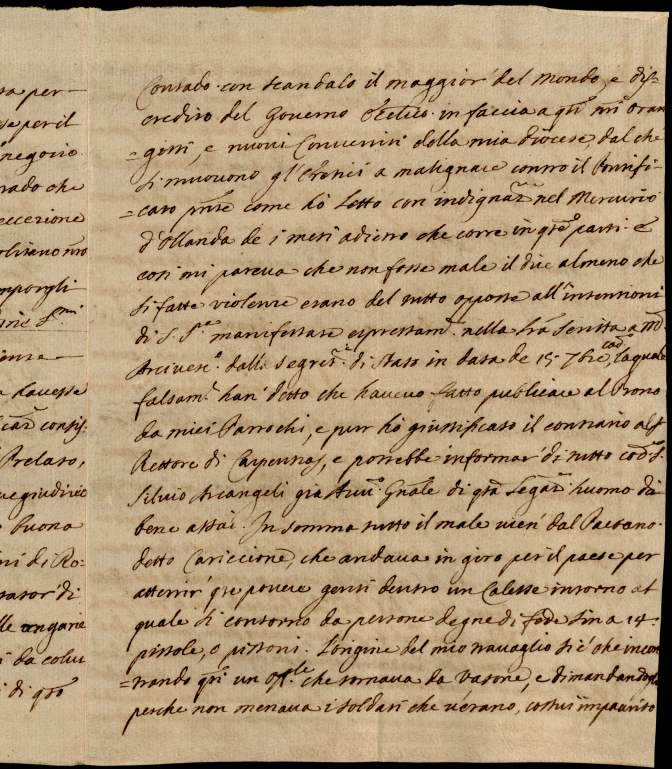 ra per-
se per il
negocio.
rado che
eccezione
imporgli
havesse
Prelato,
pregiudizio
buona
ni di Ro:
rator di
lle angarie
i da colui
i di qto
Contado con scandalo il maggior' del mondo, e dis=
credito del Governo in faccia a qti mi oran
=gisti, e nuovi Convertiti della mia diocese, dal che
si muovono gl'Eretici a malignare contro il Pontifi-
=cato pnte come hò letto con indignaz.ne nel Mercurio
d'Ollanda de i mesi adietro che corre in qte parti. E
così mi pareva che non fosse male il dire almeno che
si fatte violenze erano del tutto opposte all'intentioni
di S. S.tà manifestate espressam.te nella lrã scritta a M
Arcivesc.o dalla Segret.a di Stato in data de 15. 7bre cad, la quale
falsam.te han' detto che havevo fatto publicare al Prono
da miei Parrochi, e pur hò giustificato il contrario al S.
Rettore di Carpentras, e potrebbe informar' di tutto cod.o S.
Silvio Arcangeli già Aud. Gñale di qta Legaz. huomo da
bene assai. In somma tutto il male vien' dal Paesano
detto Cariccione, che andava in giro per il paese per
atterrir' qte povere genti dentro un Calesse intorno al
quale si contorno da persone degne di fede sin a 14.
pistole, o pistoni. L'origine del mio travaglio si è che incon
=trando qti un off.le che tornava da Vasone, e dimandandogli
perche non menava i soldati che v'erano, costui impaurito